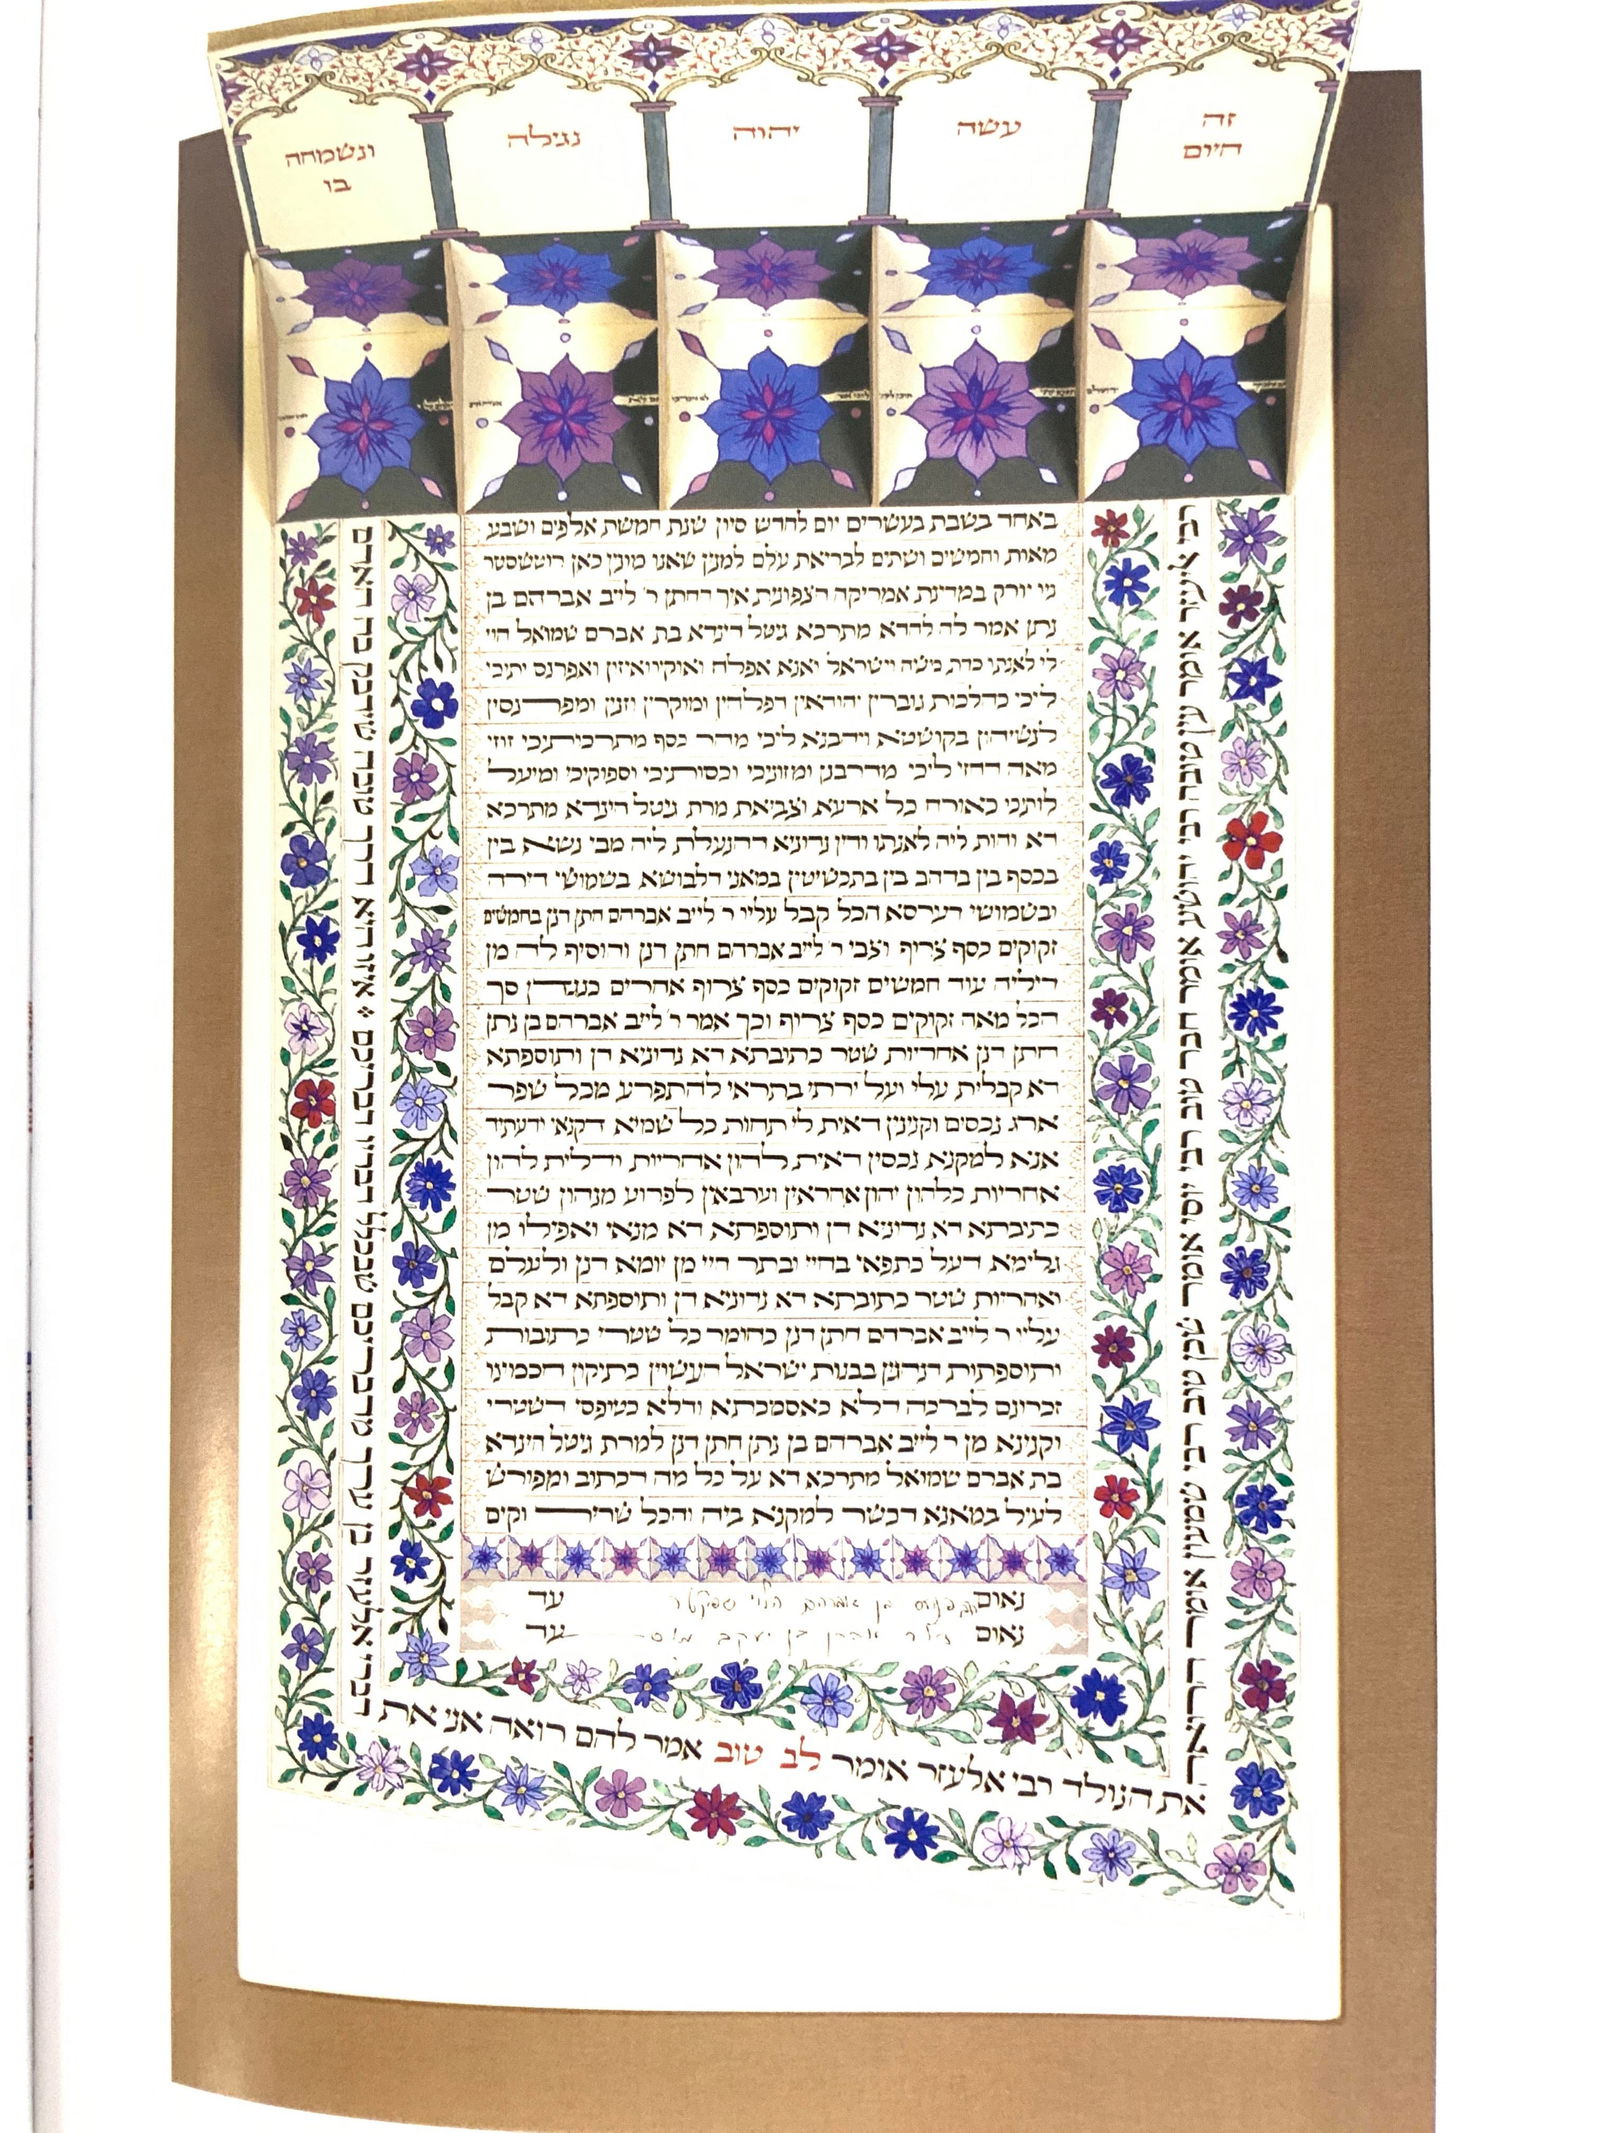 זה
היום
עשה
יהוה
נגילה
ונשמחה
בו
באחד בשבת בעשרים יום לחדש סיון שנת חמשת אלפים ושבע
מאות וחמשים ושתים לבריאת עלם למנין שאנו מונין כאן רוטשסטר
ניו יורק במדינת אמריקה הצפונית איך החתן ר' לייב אברהם בן
נתן אמר לה להדא מתרכא גיטל הינדא בת אברם שמואל הוי
לי לאנתו כדת משה וישראל ואנא אפלח ואוקיר ואיזון ואפרנס יתיכי
ליכי כהלכות גוברין יהודאין דפלחין ומוקרין וזנין ומפרנסין
לנשיהון בקושטא ויהבנא ליכי מהר כסף מתרכותיכי זוזי
מאה דחזי ליכי מדרבנן ומזוניכי וכסותיכי וסיפוקיכי ומיעל
לותיכי כאורח כל ארעא וצביאת מרת גיטל הינדא מתרכא
דא והות ליה לאנתו ודין נדוניא דהנעלת ליה מבי נשא בין
בכסף בין בדהב בין בתכשיטין במאני דלבושא בשמושי דירה
ובשמושי דערסא הכל קבל עליו ר לייב אברהם חתן דנן בחמשים
זקוקים כסף צריף וצבי ר' לייב אברהם חתן דנן והוסיף לה מן
דיליה עוד חמשים זקוקים כסף צרוף אחרים כנגדן סך
הכל מאה זקוקים כסף צרוף וכך אמר ר' לייב אברהם בן נתן
חתן דנן אחריות שטר כתובתא דא נדוניא דן ותוספתא
דא קבלית עלי ועל ירתי בתראי להתפרע מכל שפר
ארג נכסים וקנינין דאית לי תחות כל שמיא דקנאי ודעתיד
אנא למקנא נכסין דאית להון אחריות ודלית להון
אחריות כלהון יהון אחראין וערבאין לפרוע מנהון שטר
כתיבתא דא נדוניא דן ותוספתא דא מנאי ואפילו מן
גלימא דעל כתפאי בחיי ובתר חיי מן יומא דנן ולעלם
ואחריות שטר כתובתא דא נדוניא דן ותוספתא דא קבל
עליו ר לייב אברהם חתן דנן כחומר כל שטרי כתובות
ותוספתות דנהגין בבנות ישראל העשויין כתיקון חכמינו
זכרונם לברכה דלא כאסמכתא ודלא כטופסי דשטרי
וקנינא מן ר לייב אברהם בן נתן חתן דנן למרת גיטל הינדא
בת אברם שמואל מתרכא דא על כל מה דכתוב ומפורש
לעיל במאנא דכשר למקנא ביה והכל שריר וקים
נאום בן אברהם הלוי עד
נאום אהרן בן יעקב עד
רבי אליעזר אומר עין טובה רבי יהושע אומר חבר טוב רבי יוסי אומר שכן טוב רבי שמעון אומר הרואה
את הנולד רבי אלעזר אומר לב טוב אמר להם רואה אני את
דברי אלעזר בן ערך מדבריכם שבכלל דבריו דבריכם איזו היא דרך טובה שידבק בה האדם